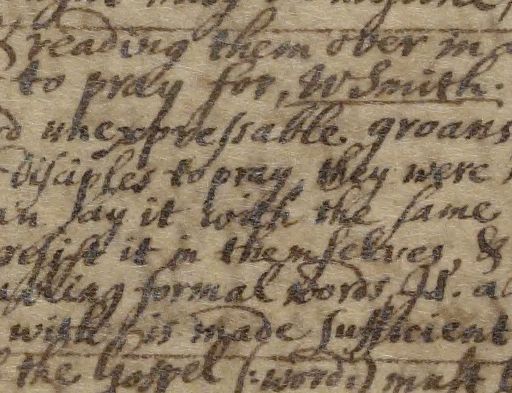 reading them over in
to pray for, W Smith.
unexpressable groans
Disciples to pray, they were
say it with the same
resist it in themselves, &
formal words, Id.
with is made sufficient
the Gospel (:word:) must